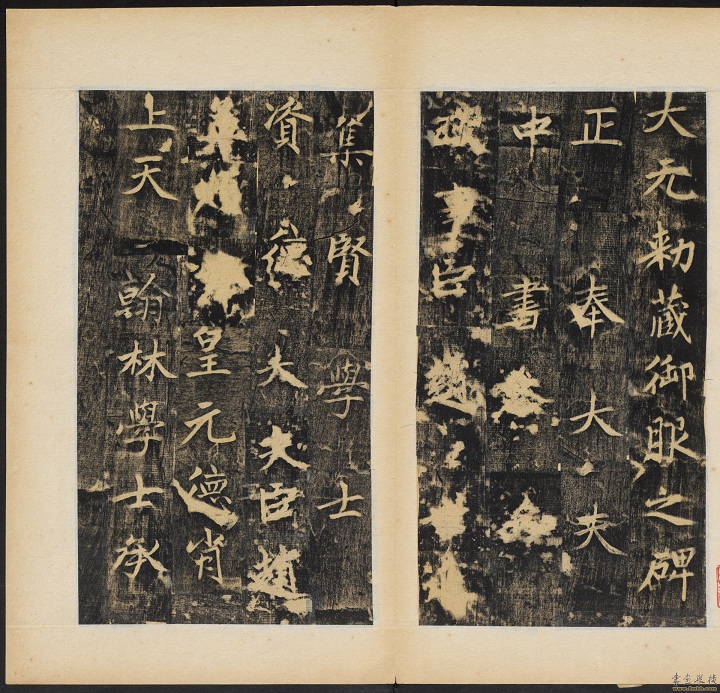 大元勅藏御服之碑
正奉大夫
中書參
事臣趙
集賢學士
資德大夫臣趙
皇元德肖
上天翰林學士承
www.9610.com